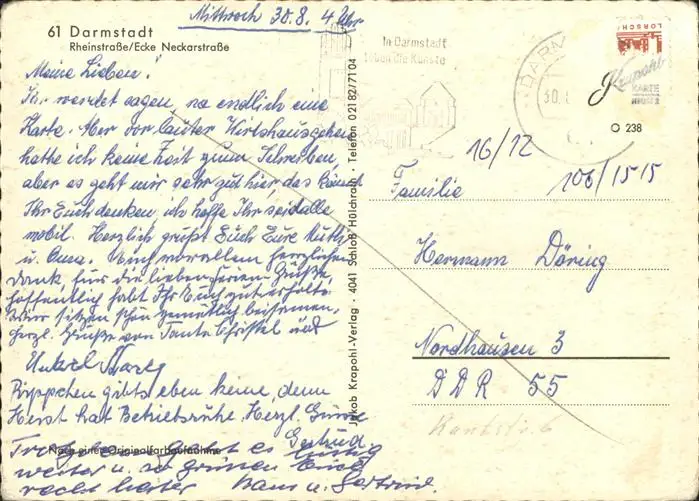 Mittwoch 30.8. 4 Uhr
61 Darmstadt
Rheinstraße/Ecke Neckarstraße
Meine Lieben!
Ihr werdet sagen, na endlich eine
Karte. Aber vor lauter Wirtshausgehen
hatte ich keine Zeit zum Schreiben
aber es geht mir sehr gut hier, das könnt
Ihr Euch denken, ich hoffe Ihr seid alle
mobil. Herzlich grüßt Euch Eure Mutti
u. Oma. Auch vor allem herzlichen
Dank für die lieben Ferien-Grüße,
hoffentlich habt Ihr Euch gut erholt.
Wir sitzen schön gemütlich beisammen,
herzl. Grüße von Tante Christel und
Onkel
Püppchen gibts eben keine, denn
Horst hat Betriebsruhe. Herzl. Grüße
Gertrud
Nach einer Originalfarbaufnahme
geht es lustig
weiter u. so grüßen Euch
recht Hans u.
Jakob Krapohl-Verlag · 4041 Schloß Hülchrath · Telefon 02182/7104
In Darmstadt
leben die Künste
DARM
30.
LORSCH
Krapohl
KARTE
O 238
16/12
106/1515
Familie
Hermann Döring
Nordhausen 3
DDR 55